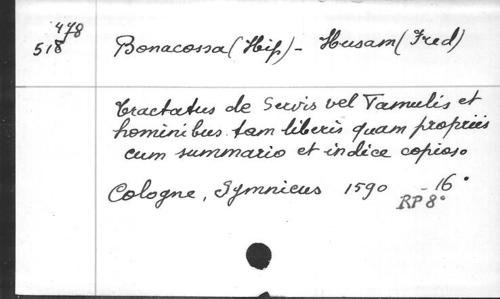 478
518
Bonacossa (Hip) - Husam (Fred)
Tractatus de Servis vel Famulis et
hominibus tam liberis quam propriis
cum summario et indice copioso
Cologne, Gymnicus 1590 - 16°
RP 8°